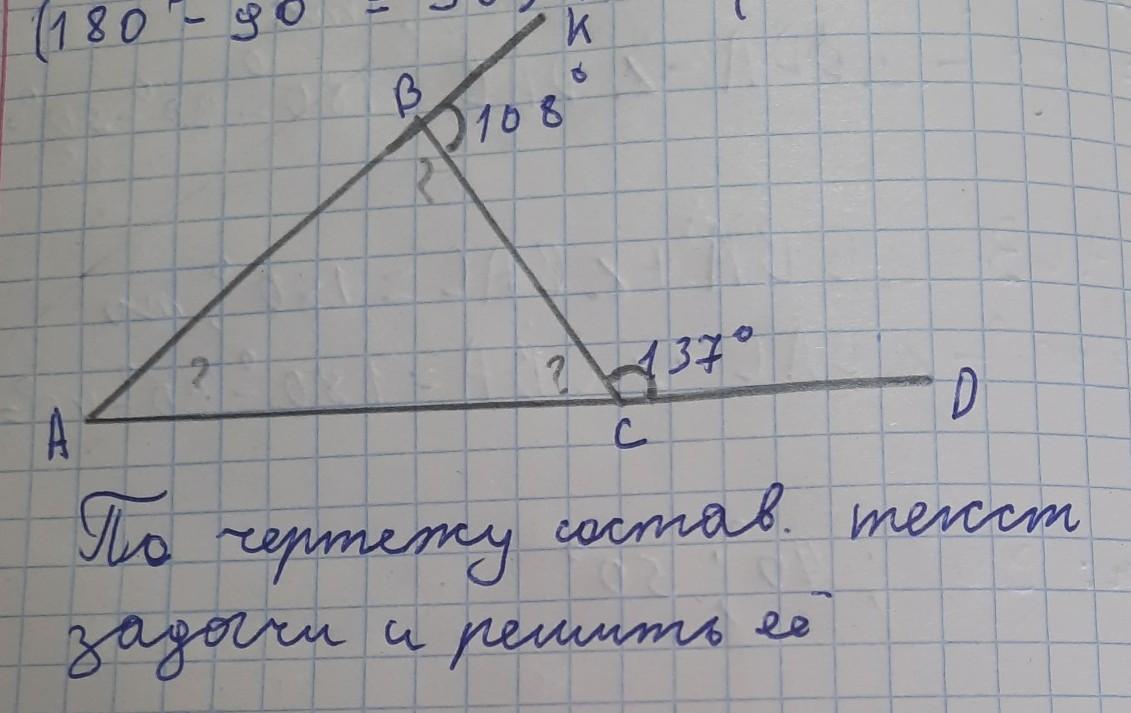 (180 - 90 =
K
B
108°
?
?
?
137°
A
C
D
По чертежу состав. текст
задачи и решить её